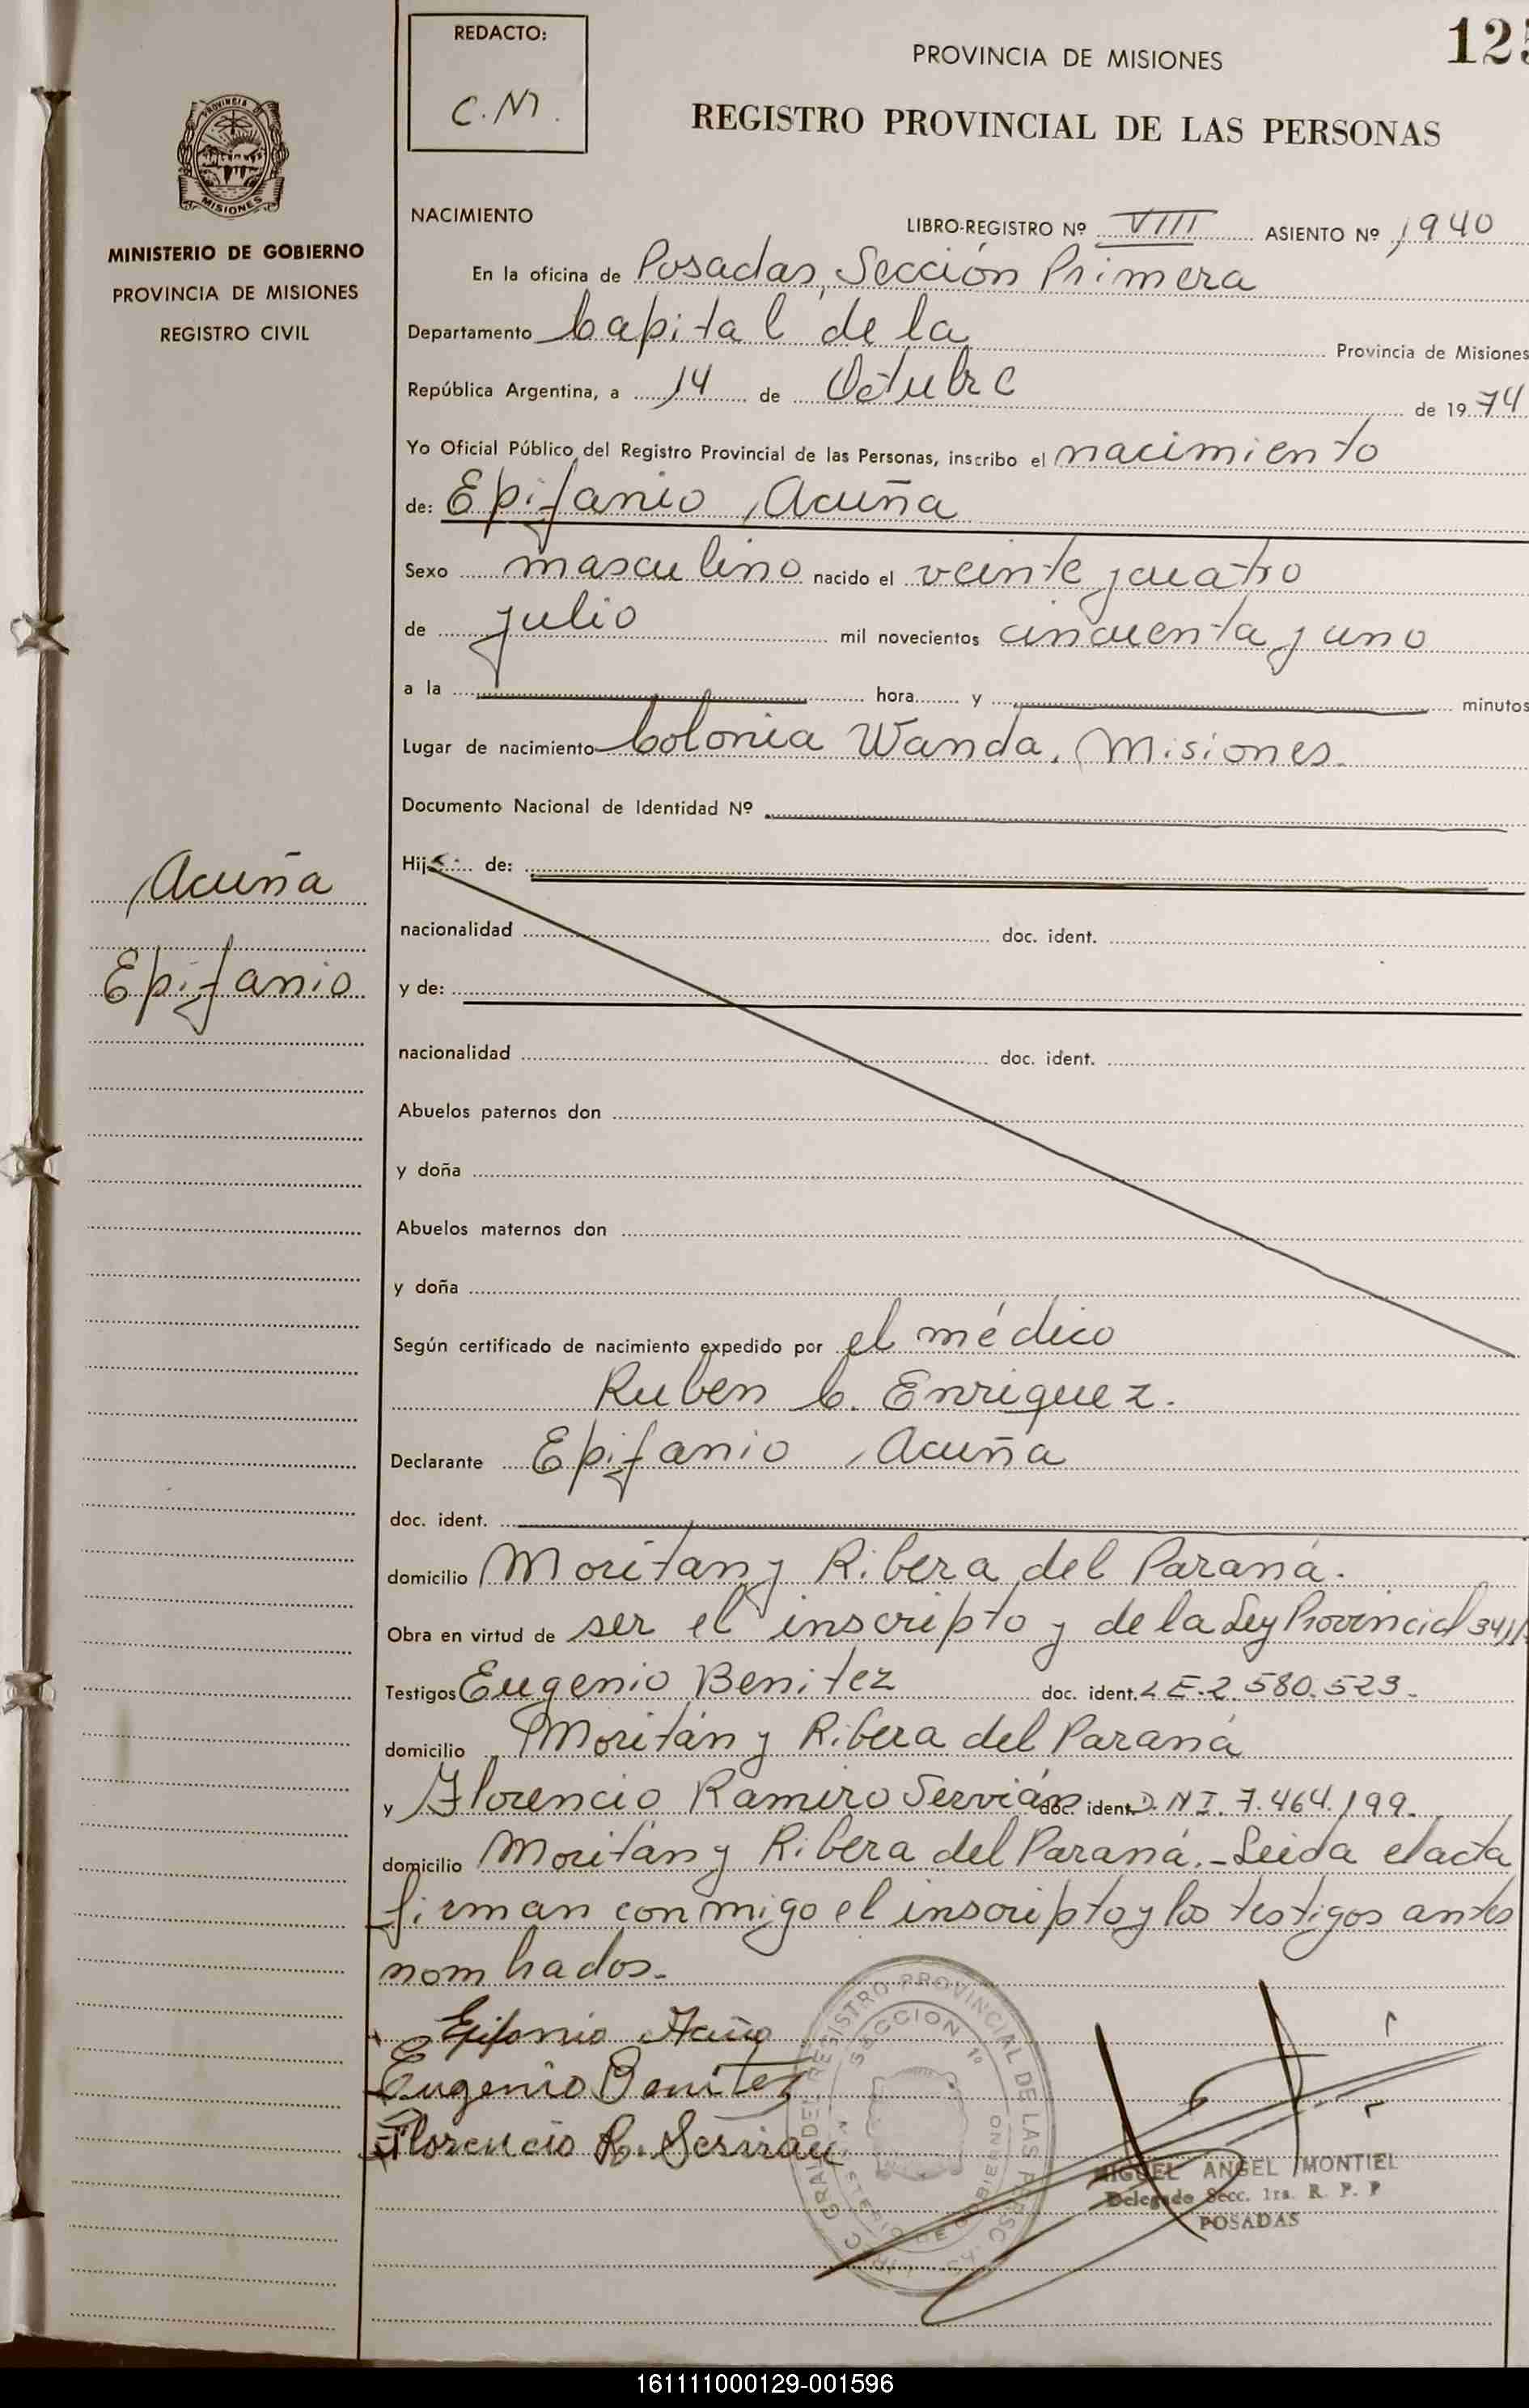 REDACTO:
C. M.
PROVINCIA DE MISIONES
REGISTRO PROVINCIAL DE LAS PERSONAS
PROVINCIA DE
MISIONES
MINISTERIO DE GOBIERNO
PROVINCIA DE MISIONES
REGISTRO CIVIL
NACIMIENTO LIBRO-REGISTRO Nº VIII ASIENTO Nº 1940
En la oficina de Posadas, Sección Primera
Departamento Capital de la Provincia de Misiones
República Argentina, a 14 de Octubre de 1974
Yo Oficial Público del Registro Provincial de las Personas, inscribo el nacimiento
de: Epifanio Acuña
Sexo masculino nacido el veinte y cuatro
de julio mil novecientos cincuenta y uno
a la hora y minutos
Lugar de nacimiento Colonia Wanda, Misiones.
Documento Nacional de Identidad Nº
Acuña
Epifanio
Hij de:
nacionalidad doc. ident.
y de:
nacionalidad doc. ident.
Abuelos paternos don
y doña
Abuelos maternos don
y doña
Según certificado de nacimiento expedido por el médico
Ruben C. Enriquez.
Declarante Epifanio Acuña
doc. ident.
domicilio Moritan y Ribera del Paraná.
Obra en virtud de ser el inscripto y de la Ley Provincial
Testigos Eugenio Benitez doc. ident. LE. 2.580.523.
domicilio Moritán y Ribera del Paraná
y Florencio Ramiro Servián doc. ident. D.N.I. 7.464.199.
domicilio Moritán y Ribera del Paraná.- Leida el acta
firman conmigo el inscripto y los testigos antes
nombrados.-
Epifanio Acuña
Eugenio Benitez
Florencio R. Servian
REGISTRO PROVINCIAL DE LAS
SECCION 1º
MIGUEL ANGEL MONTIEL
Delegado Secc. 1ra. R. P. P
POSADAS
161111000129-001596